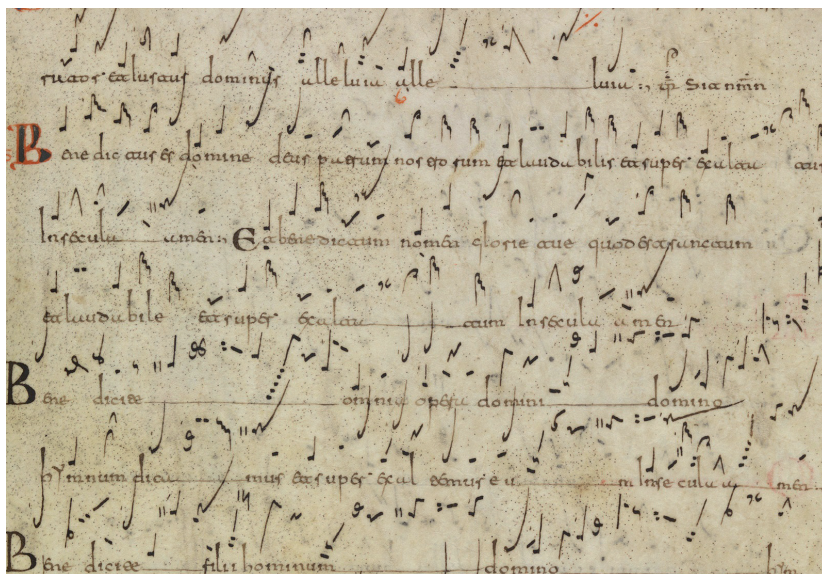 dominus alleluia alle luia
Bene dictus es domine deus patrum nostrorum et laudabilis et super exalta tus
In secula amen Et benedictum nomen glorie tue quod est sanctum
et laudabile et super exalta tum In secula amen
Bene dicite omnia opera domini domino
hymnum dica mus et super exal temus eu m In secula a men
Bene dicite filii hominum domino hym